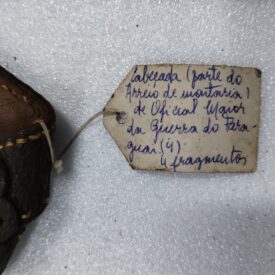 Cabeçada (parte do
Arreio de montaria)
de Oficial Maior
da Guerra do Para-
guai (4)
4 fragmentos